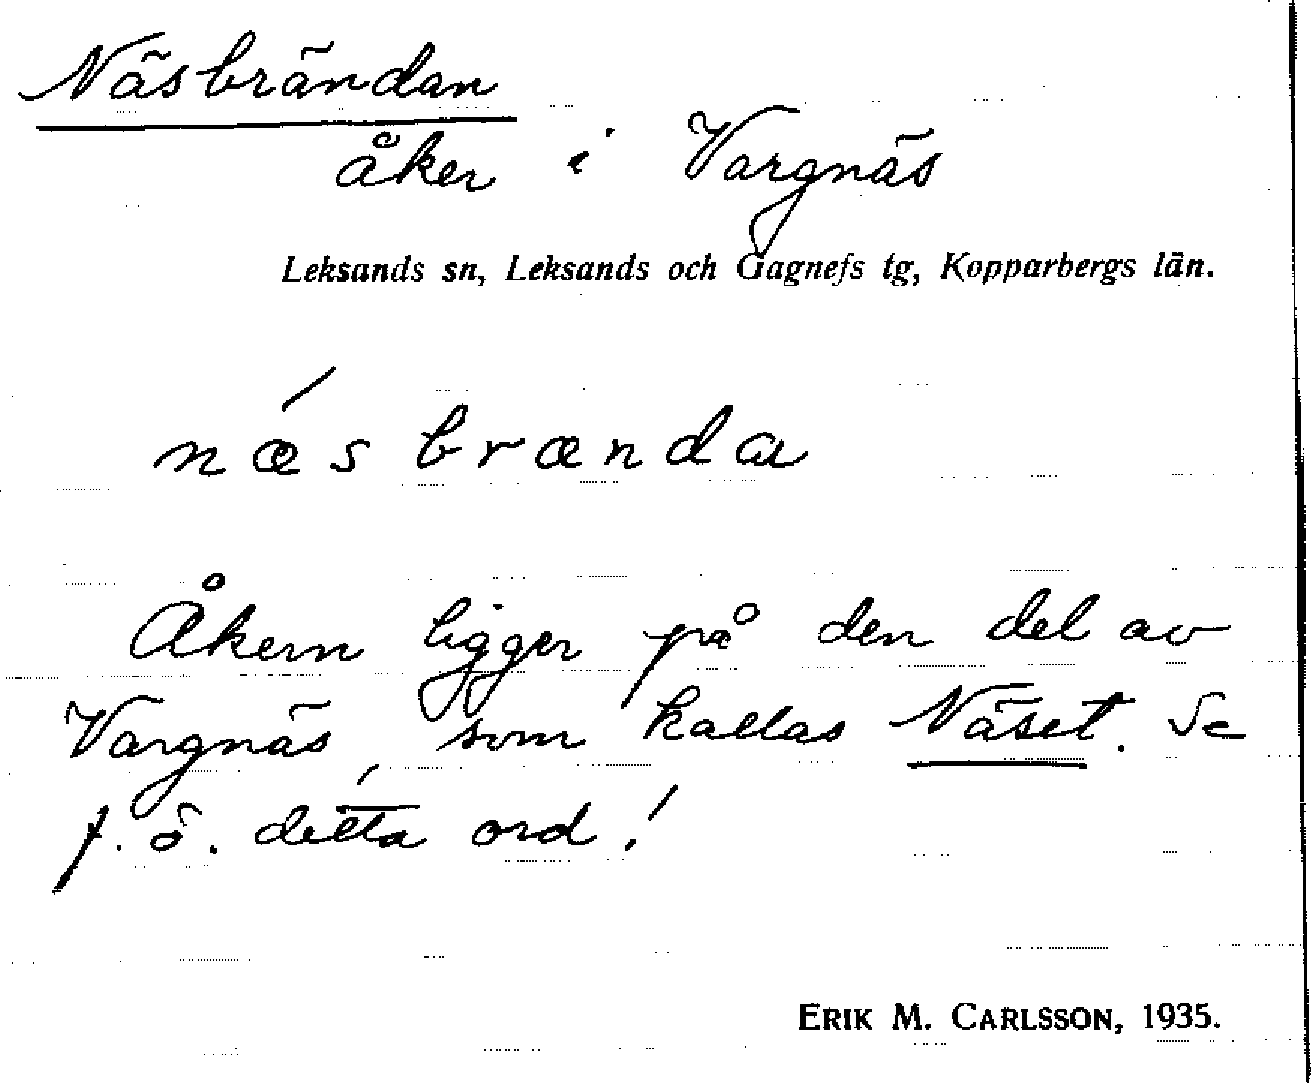 Näsbrändan
åker i Vargnäs
Leksands sn, Leksands och Gagnefs tg, Kopparbergs län.
nǽsbrænda
Åkern ligger på den del av
Vargnäs, som kallas Näset. Se
f. ö. detta ord!
ERIK M. CARLSSON, 1935.